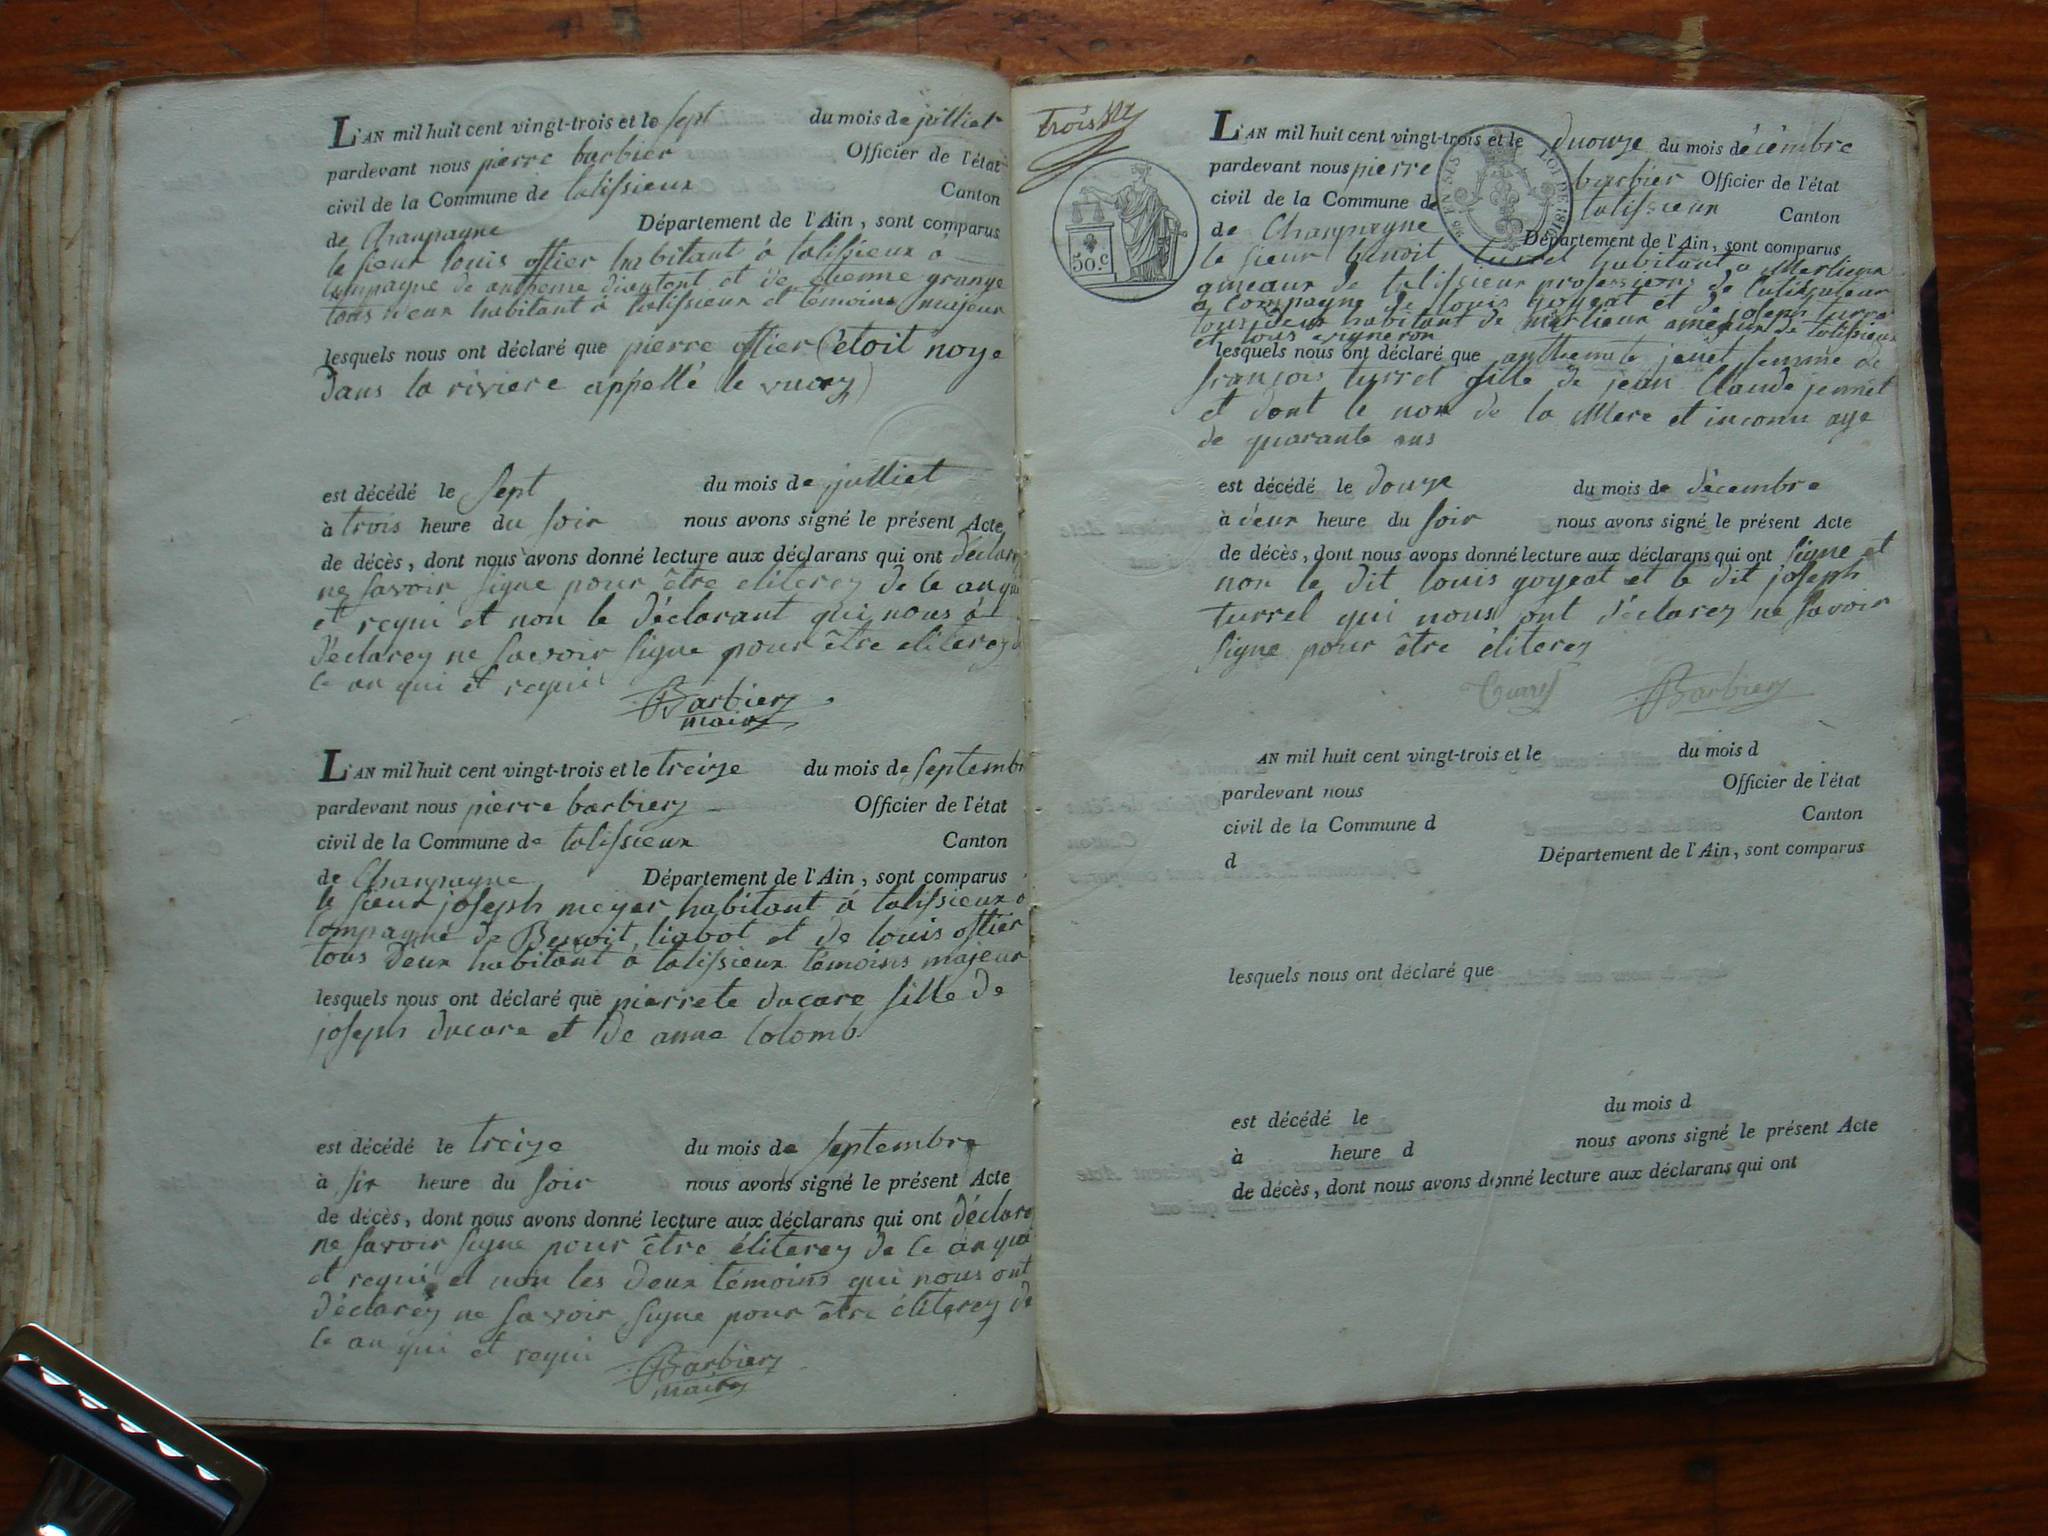 L'AN mil huit cent vingt-trois et le sept du mois de julliet
pardevant nous pierre barbier Officier de l'état
civil de la Commune de talissieux Canton
de Champagne Département de l'Ain, sont comparus
le sieur louis ostier habitant á talissieux á
Compagne de antheme et de etienne grange
tous deux habitant á talissieux et témoins majeur
lesquels nous ont déclaré que pierre ostier (etoit noye
dans la riviere appellé le
est décédé le sept du mois de julliet
à trois heure du soir nous avons signé le présent Acte
de décès, dont nous avons donné lecture aux déclarans qui ont déclare
ne savoir signe pour être eliterez de ce an qui
et requi et non le déclarant qui nous á
déclarez ne savoir signe pour être eliterez d
ce an qui et requi
Barbiez
maire
L'AN mil huit cent vingt-trois et le treize du mois de septembr
pardevant nous pierre barbiez Officier de l'état
civil de la Commune de talissieux Canton
de Champagne Département de l'Ain, sont comparus
le sieur joseph meyer habitant á talissieux á
Compagne de Benoit liabot et de louis ostier
tous deux habitant á talissieux témoins majeur
lesquels nous ont déclaré que pierrete ducare fille de
joseph ducare et de anne Colomb
est décédé le treize du mois de septembre
à six heure du soir nous avons signé le présent Acte
de décès, dont nous avons donné lecture aux déclarans qui ont déclare
ne savoir signe pour être éliterez de ce an qui
et requi et non les deux témoins qui nous ont
déclarez ne savoir signe pour être éliterez de
ce an qui et requi
Barbiez
maire
trois
50.c
L'AN mil huit cent vingt-trois et le duouze du mois de décembre
pardevant nous pierre barbier Officier de l'état
civil de la Commune de talissieux Canton
de Champagne Département de l'Ain, sont comparus
le sieur benoit turrel habitant a Marlieux
ameaux de talissieux professions de
a Compagne de louis goyeat et de joseph turre
tous deux habitant de marlieux ameaux de talissieux
et tous vigneron
lesquels nous ont déclaré que anthemete jenet femme de
françois turrel fille de jean Claude jennet
et dont le nom de la Mere et inconu aye
de quarante ans
est décédé le douze du mois de décembre
à deux heure du soir nous avons signé le présent Acte
de décès, dont nous avons donné lecture aux déclarans qui ont signe et
non le dit louis goyeat et le dit joseph
turrel qui nous ont déclarez ne savoir
signe pour être éliterez
Barbiez
AN mil huit cent vingt-trois et le du mois d
pardevant nous Officier de l'état
civil de la Commune d Canton
d Département de l'Ain, sont comparus
lesquels nous ont déclaré que
est décédé le du mois d
à heure d nous avons signé le présent Acte
de décès, dont nous avons donné lecture aux déclarans qui ont